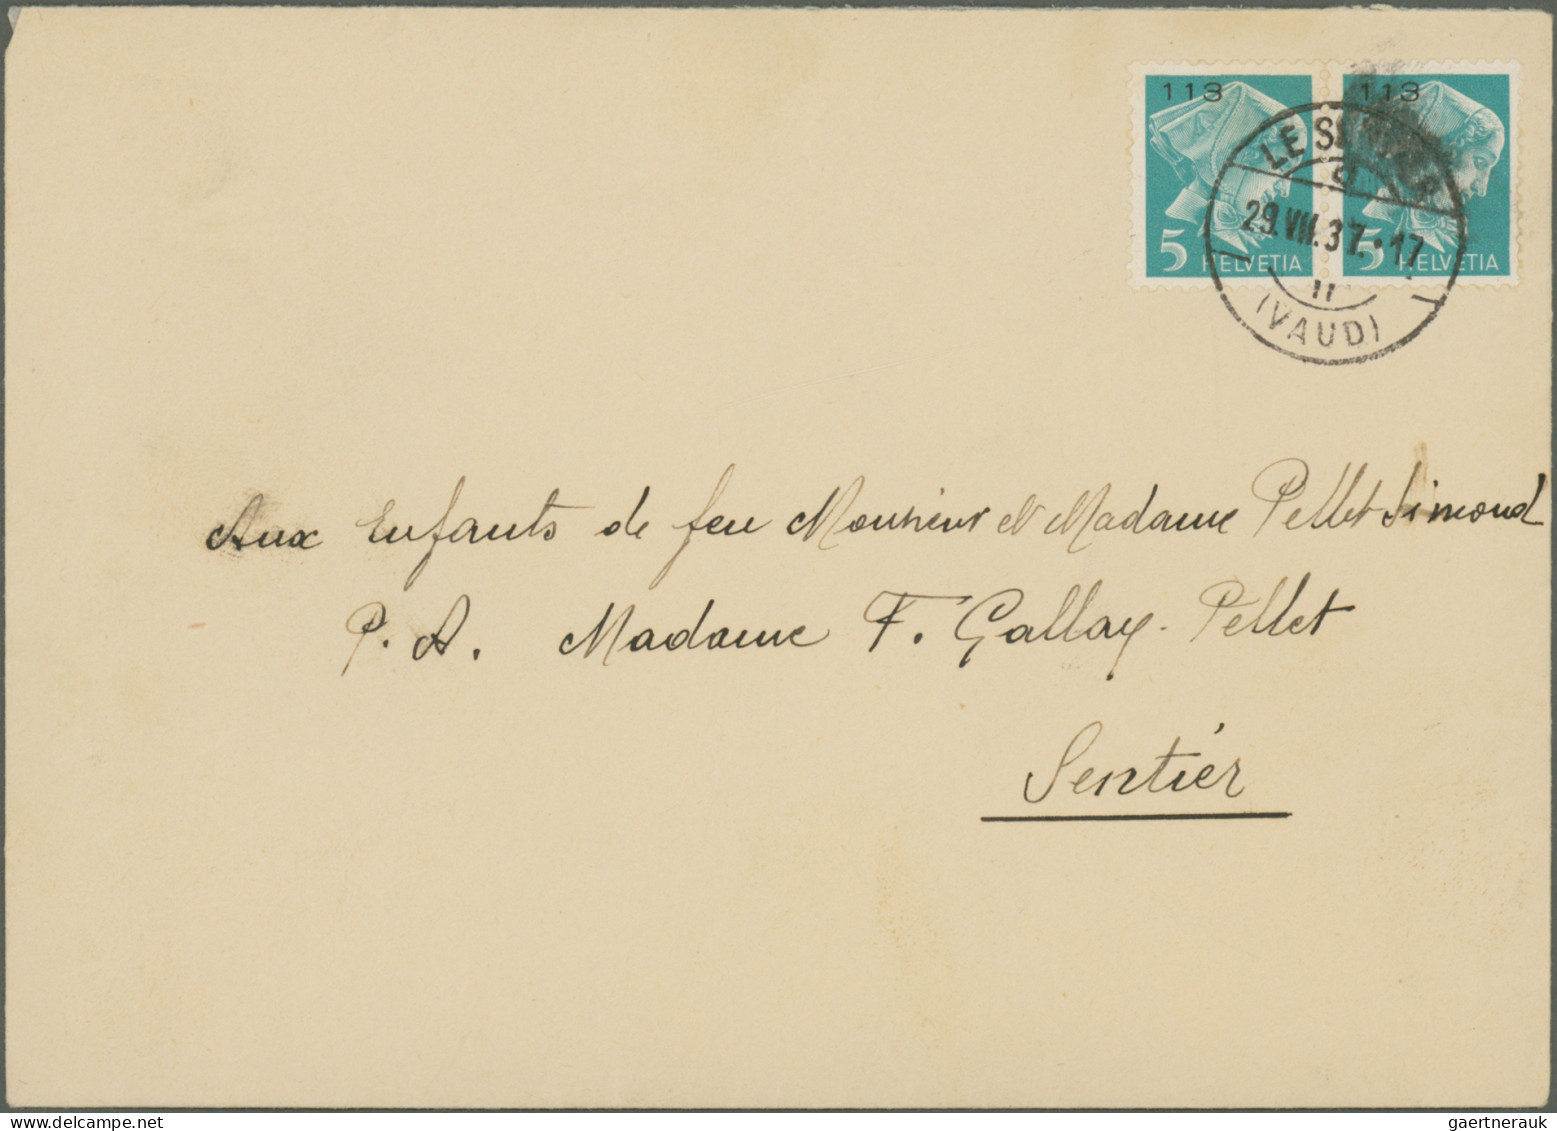 113 113
LE SENTIER
29.VII.37.-17
5 HELVETIA 5 HELVETIA
(VAUD)
Aux Enfants de feu Monsieur et Madame Pellet Simond
P. A. Madame F. Gallay-Pellet
Sentier
gaertnerauk